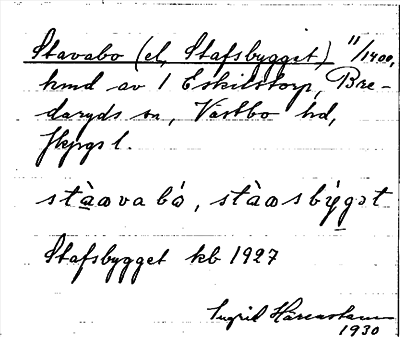 Stavabo (el. Stafsbygget) 11/1400,
hmd av 1 Eskilstorp, Bre-
daryds sn, Västbo hd,
Jkpgs l.
stàɷva bó, stàɷsbýgət
Stafsbygget kb 1927
Ingrid
1930